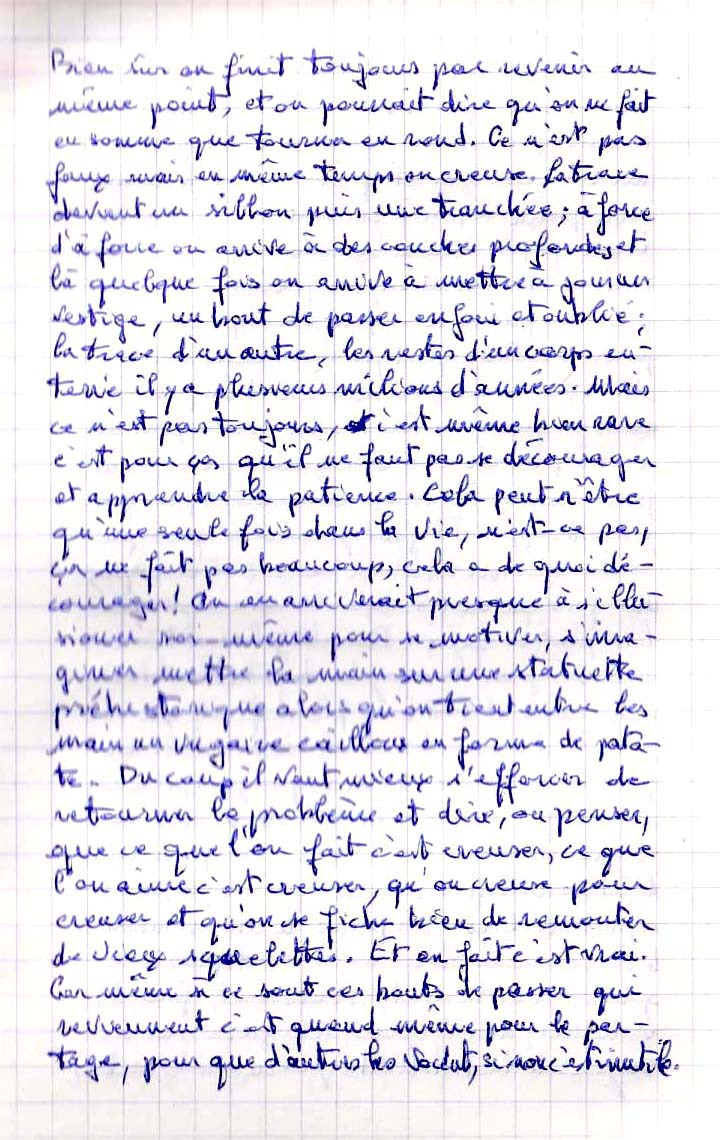 Bien sur on finit toujours par revenir au
même point, et on pourrait dire qu'on ne fait
en somme que tourner en rond. Ce n'est pas
faux mais en même temps on creuse. la trace
devient un sillon puis une tranchée ; à force
d'à force on arrive à des couches profondes et
là quelque fois on arrive à mettre à jour un
vestige, un bout de passer enfoui et oublié ;
la trace d'un autre, les restes d'un corps en-
terré il y a plusieurs milions d'années. Mais
ce n'est pas toujours, c'est même bien rare
c'est pour ça qu'il ne faut pas se décourager
et apprendre la patience. Cela peut n'être
qu'une seule fois dans la vie, n'est-ce pas,
ça ne fait pas beaucoup, cela a de quoi dé-
courager ! On en arriverait presque à s'illu-
sionner soi-même pour se motiver, s'ima-
giner mettre la main sur une statuette
préhistorique alors qu'on tient entre les
main un vulgaire caillou en forme de pata-
te. Du coup il vaut mieux s'efforcer de
retourner le problème et dire, ou penser,
que ce que l'on fait c'est creuser, ce que
l'on aime c'est creuser, qu'on creuse pour
creuser et qu'on se fiche bien de remonter
de vieux squelettes. Et en fait c'est vrai.
Car même si ce sont ces bouts de passer qui
reviennent c'est quand même pour le par-
tage, pour que d'autres les voient, sinon c'est inutile.